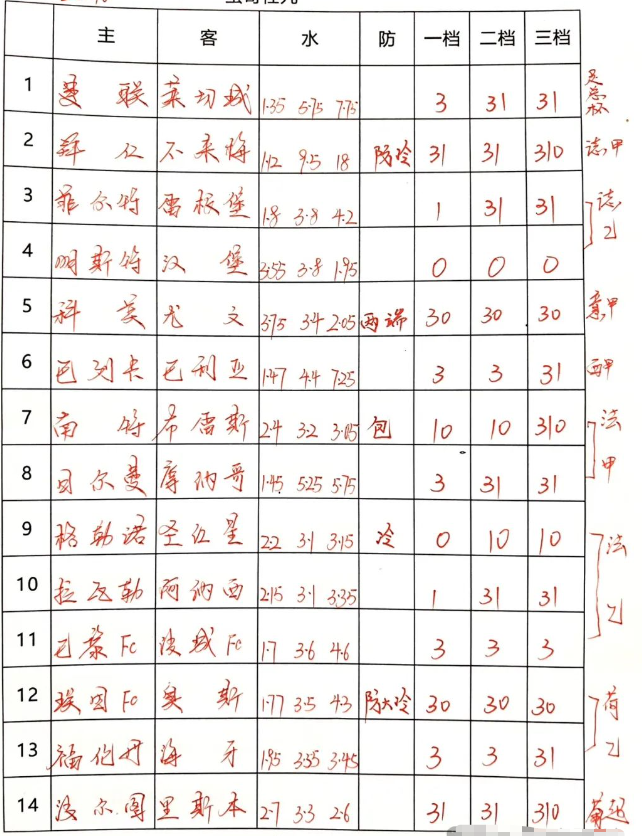 主 客 水 防 一档 二档 三档
1 曼联 莱切城 1.35 5.75 7.75 3 31 31 足总杯
2 拜仁 不来梅 1.12 9.5 18 防冷 31 31 310 德甲
3 菲尔特 雷根堡 1.8 3.8 4.2 1 31 31 德乙
4 明斯特 汉堡 3.55 3.8 1.95 0 0 0
5 科莫 尤文 3.75 3.4 2.05 两端 30 30 30 意甲
6 巴列卡 巴利亚 1.47 4.4 7.25 3 3 31 西甲
7 南特 布雷斯 2.4 3.2 3.05 包 10 10 310 法甲
8 巴尔曼 摩纳哥 1.45 5.25 5.75 3 31 31
9 格勒诺 圣红星 2.2 3.1 3.15 冷 0 10 10 法乙
10 拉瓦勒 阿纳西 2.15 3.1 3.35 1 31 31
11 巴黎Fc 波城Fc 1.7 3.6 4.6 3 3 3
12 埃因Fc 奥斯 1.77 3.5 4.3 防大冷 30 30 30 荷乙
13 福伦丹 海牙 1.95 3.55 3.45 3 3 31
14 波尔图 里斯本 2.7 3.3 2.6 31 31 310 葡超